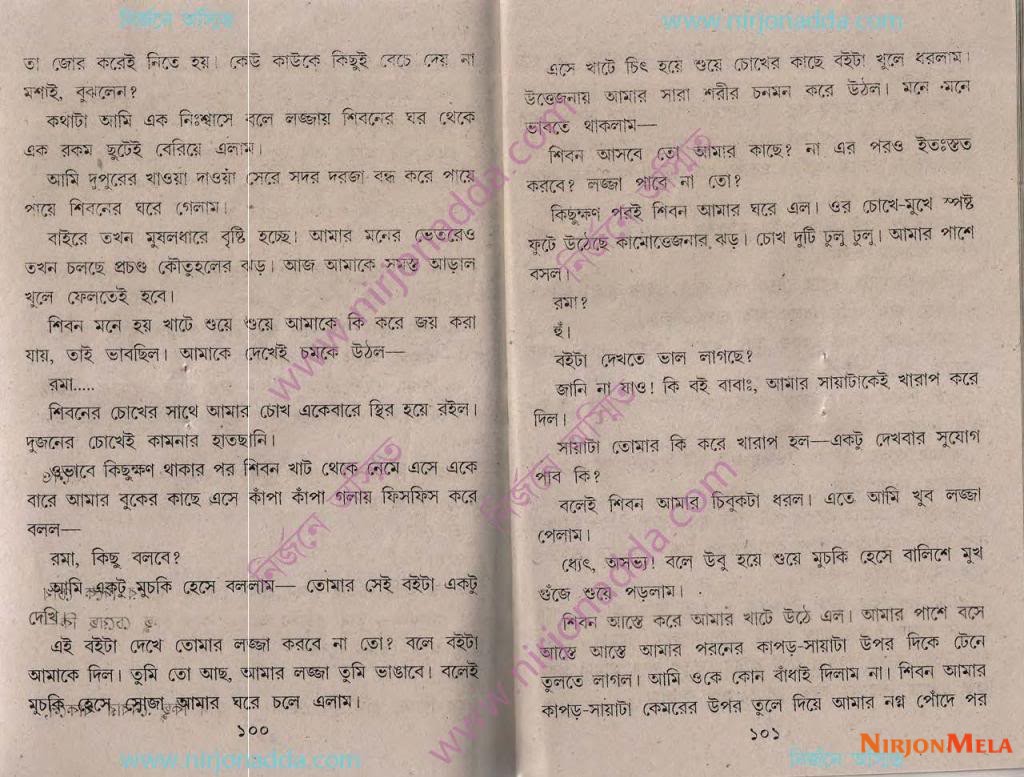 নির্জনে অস্মিত
তা জোর করেই নিতে হয়। কেউ কাউকে কিছুই বেচে দেয় না
মশাই, বুঝলেন?
কথাটা আমি এক নিঃশ্বাসে বলে লজ্জায় শিবনের ঘর থেকে
এক রকম ছুটেই বেরিয়ে এলাম।
আমি দুপুরের খাওয়া দাওয়া সেরে সদর দরজা বন্ধ করে পায়ে
পায়ে শিবনের ঘরে গেলাম।
বাইরে তখন মুষলধারে বৃষ্টি হচ্ছে। আমার মনের ভেতরেও
তখন চলছে প্রচণ্ড কৌতুহলের ঝড়। আজ আমাকে সমস্ত আড়াল
খুলে ফেলতেই হবে।
শিবন মনে হয় খাটে শুয়ে শুয়ে আমাকে কি করে জয় করা
যায়, তাই ভাবছিল। আমাকে দেখেই চমকে উঠল—
রমা.....
শিবনের চোখের সাথে আমার চোখ একেবারে স্থির হয়ে রইল।
দুজনের চোখেই কামনার হাতছানি।
ওভাবে কিছুক্ষণ থাকার পর শিবন খাট থেকে নেমে এসে একে
বারে আমার বুকের কাছে এসে কাঁপা কাঁপা গলায় ফিসফিস করে
বলল—
রমা, কিছু বলবে?
আমি একটু মুচকি হেসে বললাম— তোমার সেই বইটা একটু
দেখি।
এই বইটা দেখে তোমার লজ্জা করবে না তো? বলে বইটা
আমাকে দিল। তুমি তো আছ, আমার লজ্জা তুমি ভাঙাবে। বলেই
মুচকি হেসে সোজা আমার ঘরে চলে এলাম।
১০০
www.nirjonadda.com
www.nirjonadda.com
এসে খাটে চিৎ হয়ে শুয়ে চোখের কাছে বইটা খুলে ধরলাম।
উত্তেজনায় আমার সারা শরীর চনমন করে উঠল। মনে মনে
ভাবতে থাকলাম—
শিবন আসবে তো আমার কাছে? না এর পরও ইতঃস্তত
করবে? লজ্জা পাবে না তো?
কিছুক্ষণ পরই শিবন আমার ঘরে এল। ওর চোখে-মুখে স্পষ্ট
ফুটে উঠেছে কামোত্তেজনার ঝড়। চোখ দুটি ঢুলু ঢুলু। আমার পাশে
বসল।
রমা?
হুঁ।
বইটা দেখতে ভাল লাগছে?
জানি না যাও! কি বই বাবাঃ, আমার সায়াটাকেই খারাপ করে
দিল।
সায়াটা তোমার কি করে খারাপ হল—একটু দেখবার সুযোগ
পাব কি?
বলেই শিবন আমার চিবুকটা ধরল। এতে আমি খুব লজ্জা
পেলাম।
ধ্যেৎ, অসভ্য! বলে উবু হয়ে শুয়ে মুচকি হেসে বালিশে মুখ
গুঁজে শুয়ে পড়লাম।
শিবন আস্তে করে আমার খাটে উঠে এল। আমার পাশে বসে
আস্তে আস্তে আমার পরনের কাপড়-সায়াটা উপর দিকে টেনে
তুলতে লাগল। আমি ওকে কোন বাঁধাই দিলাম না। শিবন আমার
কাপড়-সায়াটা কেমরের উপর তুলে দিয়ে আমার নগ্ন পোঁদে পর
১০১
নির্জনে অস্মিত
NIRJONMELA
www.nirjonadda.com
নির্জনে অস্মিত
www.nirjonadda.com
নির্জনে অস্মিত
নির্জনে অস্মিত